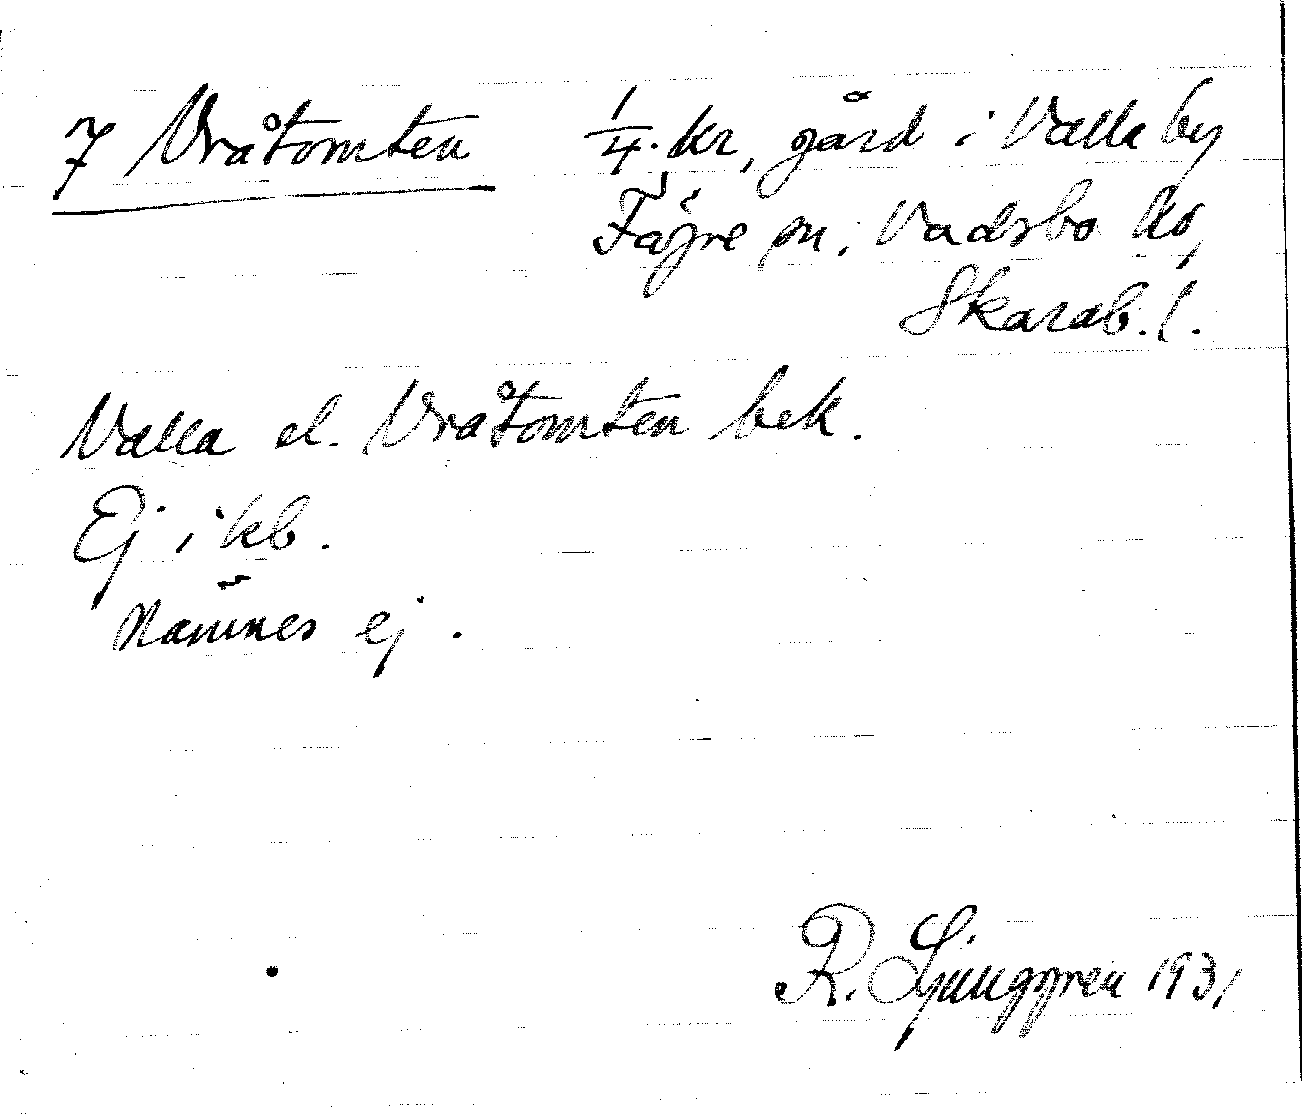 7 Vråtomten 1/4. kr, gård i Valla by
Fägre sn, Vadsbo hd,
Skarab. l.
Valla el. Vråtomten bek.
Ej i kb.
Nämnes ej.
R. Ljunggren 1931